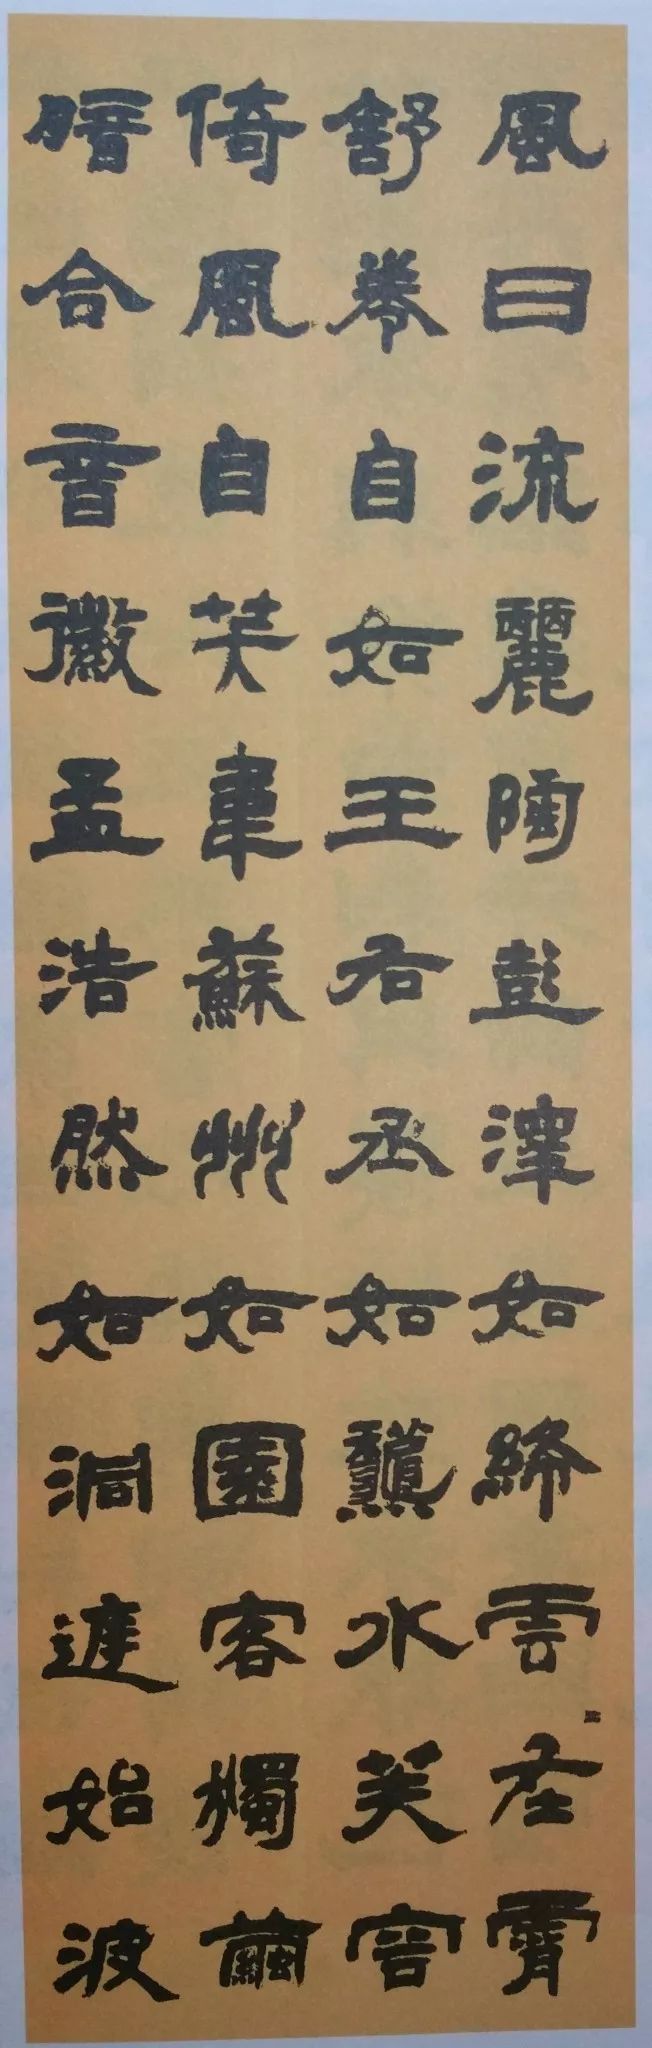 風日流麗陶彭澤如絳雲在霄
舒卷自如王右丞如龝水芙容
倚風自笑韋蘇州如園客獨繭
暗合音徽孟浩然如洞庭始波